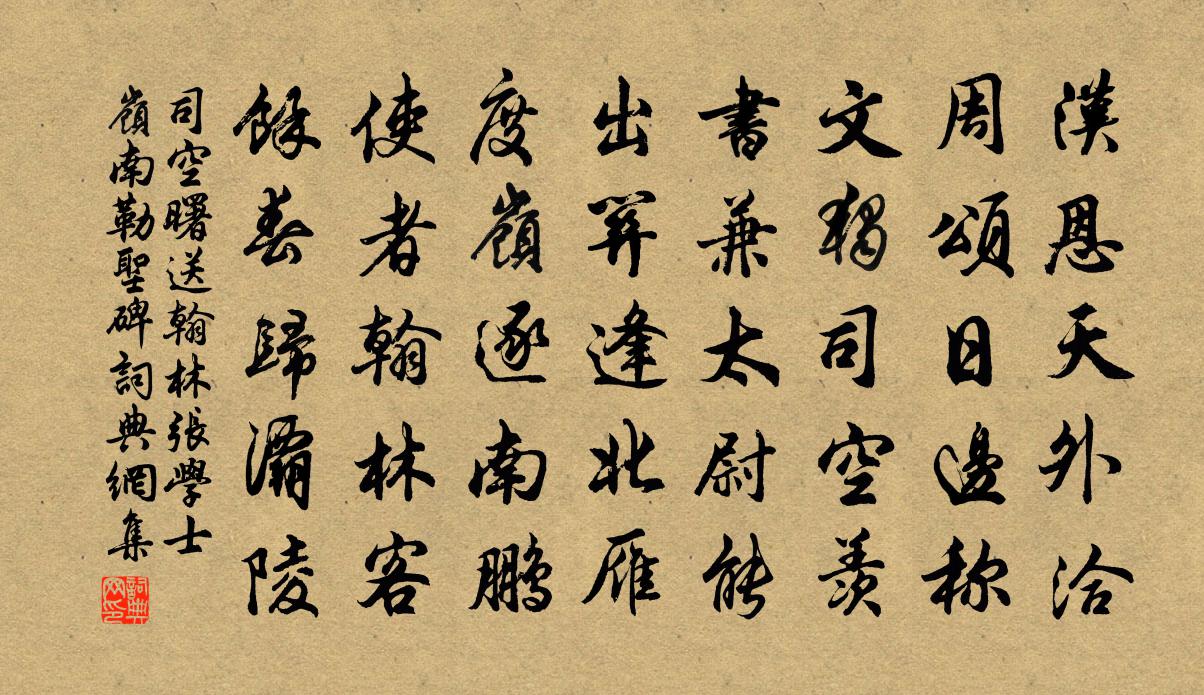 漢恩天外洽
周頌日邊称
文獨司空羨
書兼太尉能
出關逢北雁
度嶺逐南鵬
使者翰林客
餘春歸灞陵
司空曙送翰林張學士
嶺南勒聖碑詞典網集
詞典网印